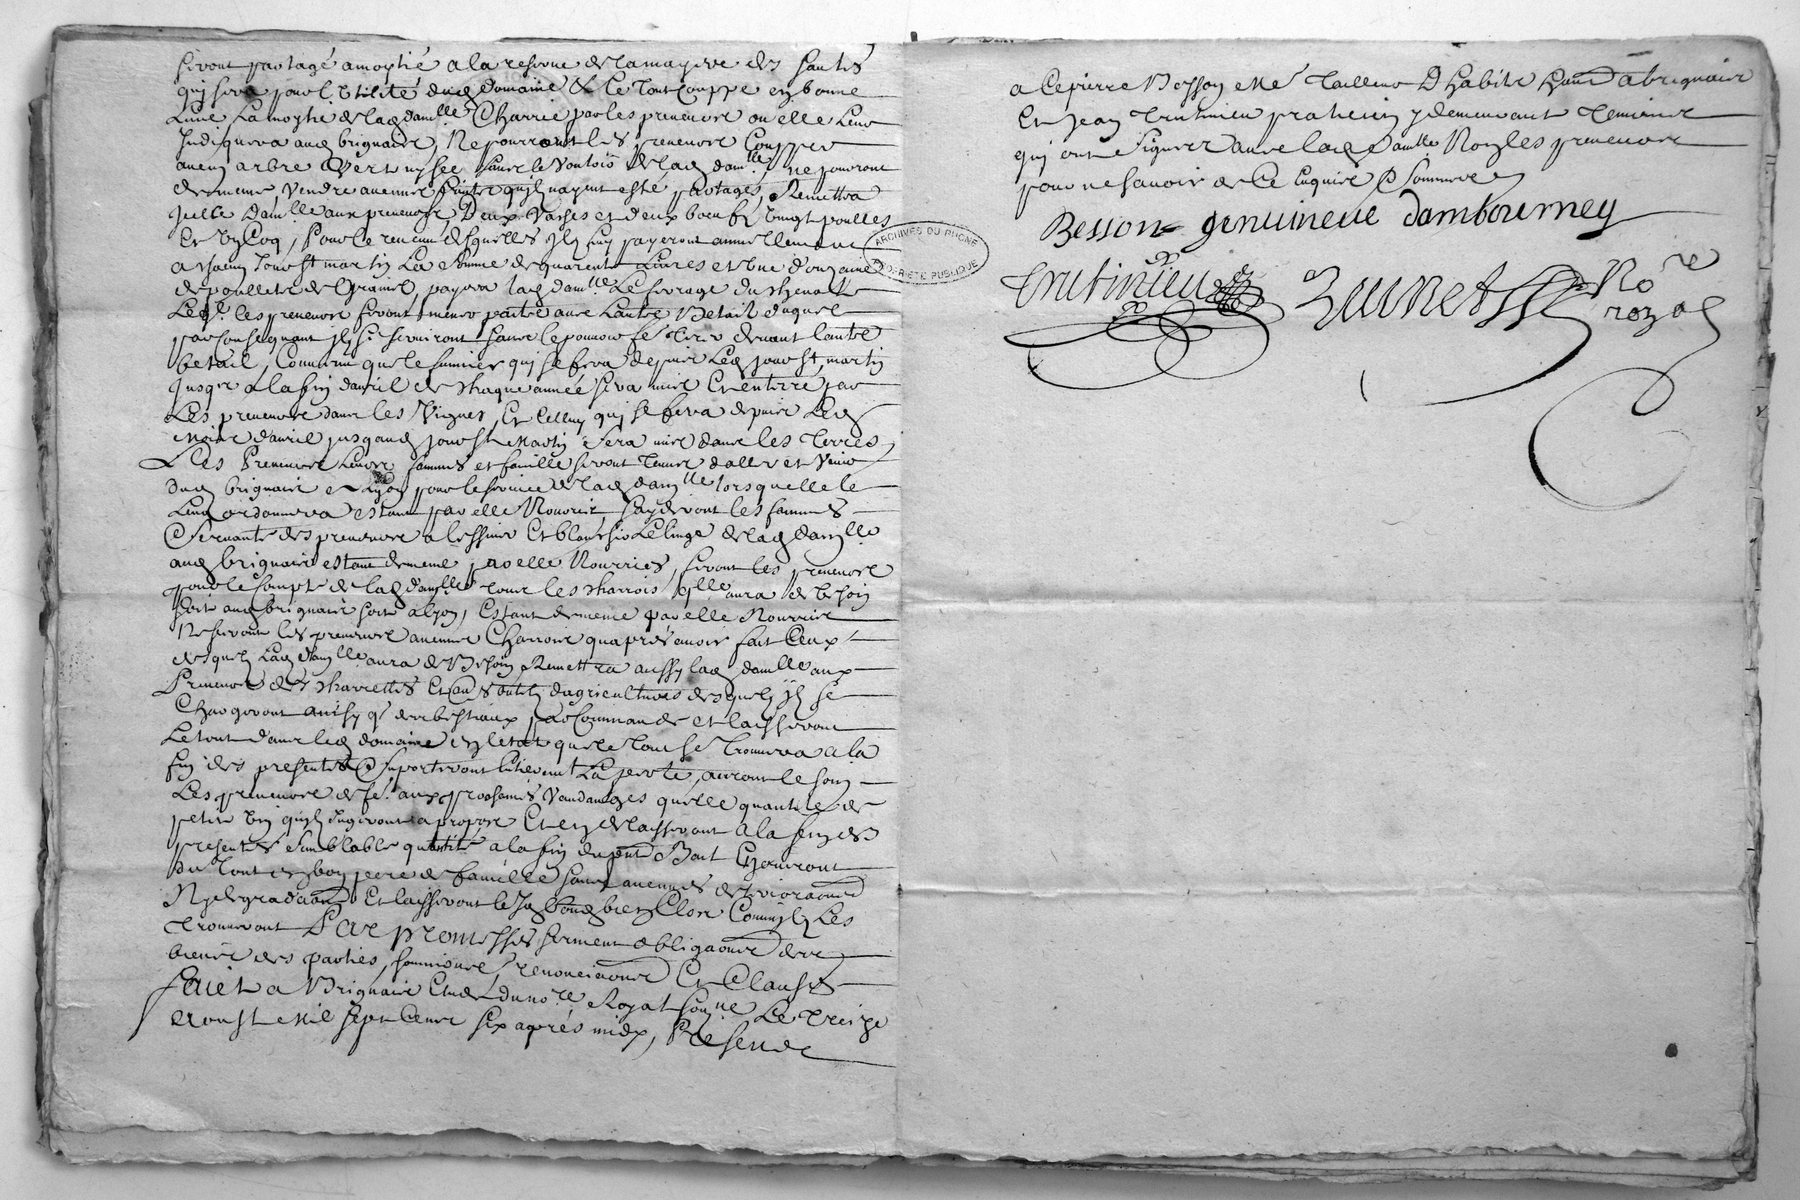 seront partagé a moytié a la reserve de la mayere des sautés
quj sera pour l'utilité dud domaine & le tout couppé en bonne
Lune La moytié de lad dam.lle Charrié par les preneurs ou elle leur
Judiquera aud brignais, Ne pourront les preneurs Coupper
aucun arbre vert ny sec sans le vouloir de lad dam.lle ne pouront
de mesme vendre aucuns fruits qujls nayent esté partagés, Remettra
Jcelle Dam.lle aux preneurs Deux Vaches et deux boeufs vingt poulles
Et un Coq, pour le revenu desquelles Jls luy payeront annuellement
a chacun Jour st martin La somme de quarente Livres et une d'ouzaine
de poullets de Chacun, payera lad dam.lle
Leql. les preneurs feront mener paitre avec Lautre Betail duquel
par consequant jls se serviront sans le pouvoir
betail, Convenu que le fumier quj se fera depuis Led jour st martin
Jusques a la fin d'avril de chaque année sera mis Et enterré par
Les preneurs dans les Vignes, Et celluy quj se fera depuis Led
Mois d'avril jusqaud jour st Martin sera mis dans les Terres
Les Preneurs Leurs fammes et famille seront tenus d'aller et Venir
Dud brignais a Lyon pour le service de lad dam.lle lors quelle le
Leur ordonnera estant par elle Nourris, Seyderont les fammes
& servantes des preneurs a lessiver Et blanchir Le linge de lad dam.lle
aud brignais estant de mesme par elle Nourries, feront les preneurs
pour le compte de lad dam.lle tous les charrois qlle aura de besoin
soit aud brignais soit a lyon, Estant de mesme par elle Nourris
Ne feront les preneurs aucuns Charrois quaprés avoir fait Ceux
desquels Lad dam.lle aura de Besoin, Remettra aussy lad dam.lle aux
Preneurs des charrettes Et outils dagriculture desquels jls se
Chargeront aussy q. des bestiaux par Commande et laisseront
Le tout dans led domaine en l'état que le tout se trouvera a la
fin des presentes & suporteront La perte, auront le soin
Les preneurs de fe. aux prochaines Vandanges quelle quantité de
petit vin qujls jugeront a propos Et en delaisseront a la fin des
presentes semblable quantité a la fin du pnt Bail Et jouiront
Du tout en bon pere de famille sans aucunes deterioraons
Ny degradaons Et laisseront le bien Clos Comme jls Les
Trouveront Par promesses serment obligaons de
biens des parties, soumisions, renonciaons Et Clauses
Fait a Brignais Etude du no.re Royal soug.né Le treize
Aoust Mil sept Cens six aprés midy, Presens
a Ce pierre Besson Me Tailleur D'habits aud brignais
Et Jean Trutinieu praticien y demeurant Temoins
quj ont Signer avec lad Damlle Non les preneurs
pour ne savoir de Ce Enquis & Sommés
Besson genuineue dambourney
Trutinieu
Brunet No.re
royal
ARCHIVES DU RHONE
PROPRIÉTÉ PUBLIQUE